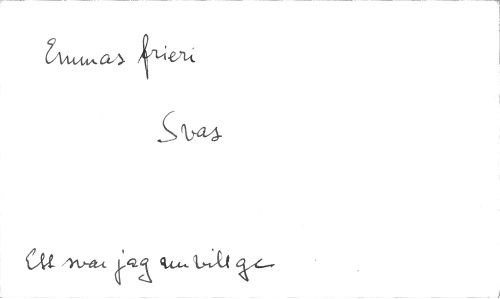 Emmas frieri
Svas
Ett svar jag em vill ge